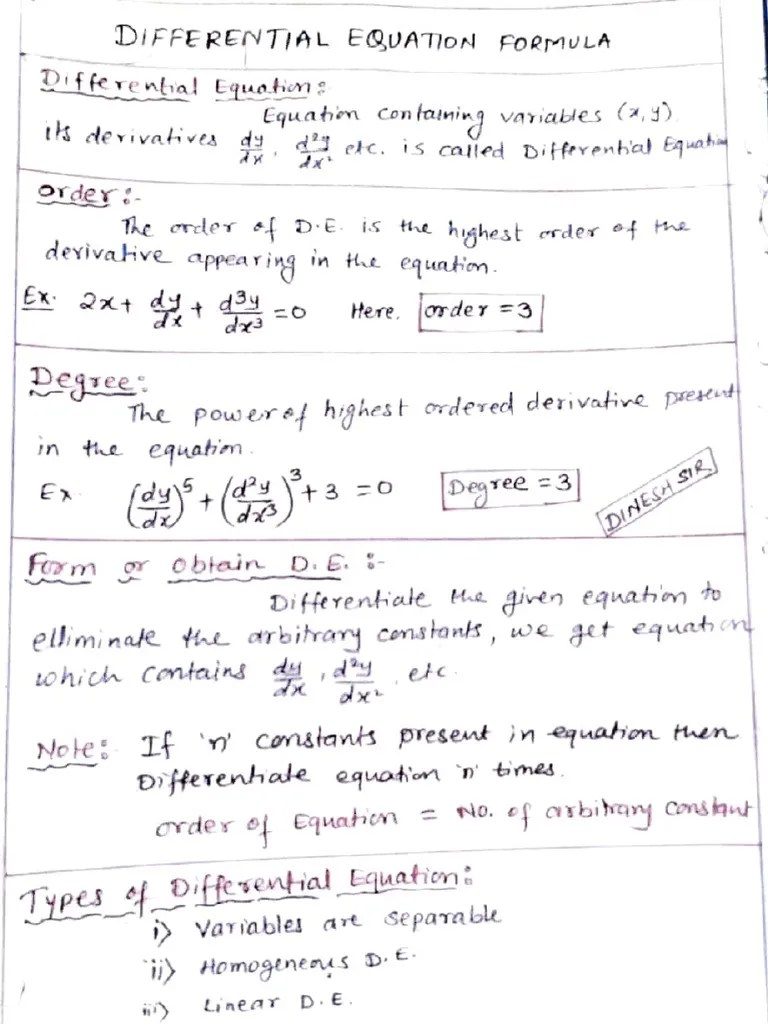 DIFFERENTIAL EQUATION FORMULA
Differential Equation:
Equation containing variables (x, y)
its derivatives dy/dx, d²y/dx² etc. is called Differential Equation
Order :-
The order of D.E. is the highest order of the
derivative appearing in the equation.
Ex. 2x + dy/dx + d³y/dx³ = 0 Here, order = 3
Degree:
The power of highest ordered derivative present
in the equation.
Ex. (dy/dx)⁵ + (d²y/dx³)³ + 3 = 0 Degree = 3
DINESH SIR
Form or Obtain D.E. :-
Differentiate the given equation to
elliminate the arbitrary constants, we get equation
which contains dy/dx, d²y/dx², etc.
Note: If 'n' constants present in equation then
Differentiate equation 'n' times.
order of Equation = No. of arbitrary constant
Types of Differential Equation:
i) Variables are separable
ii) Homogeneous D.E.
iii) Linear D.E.